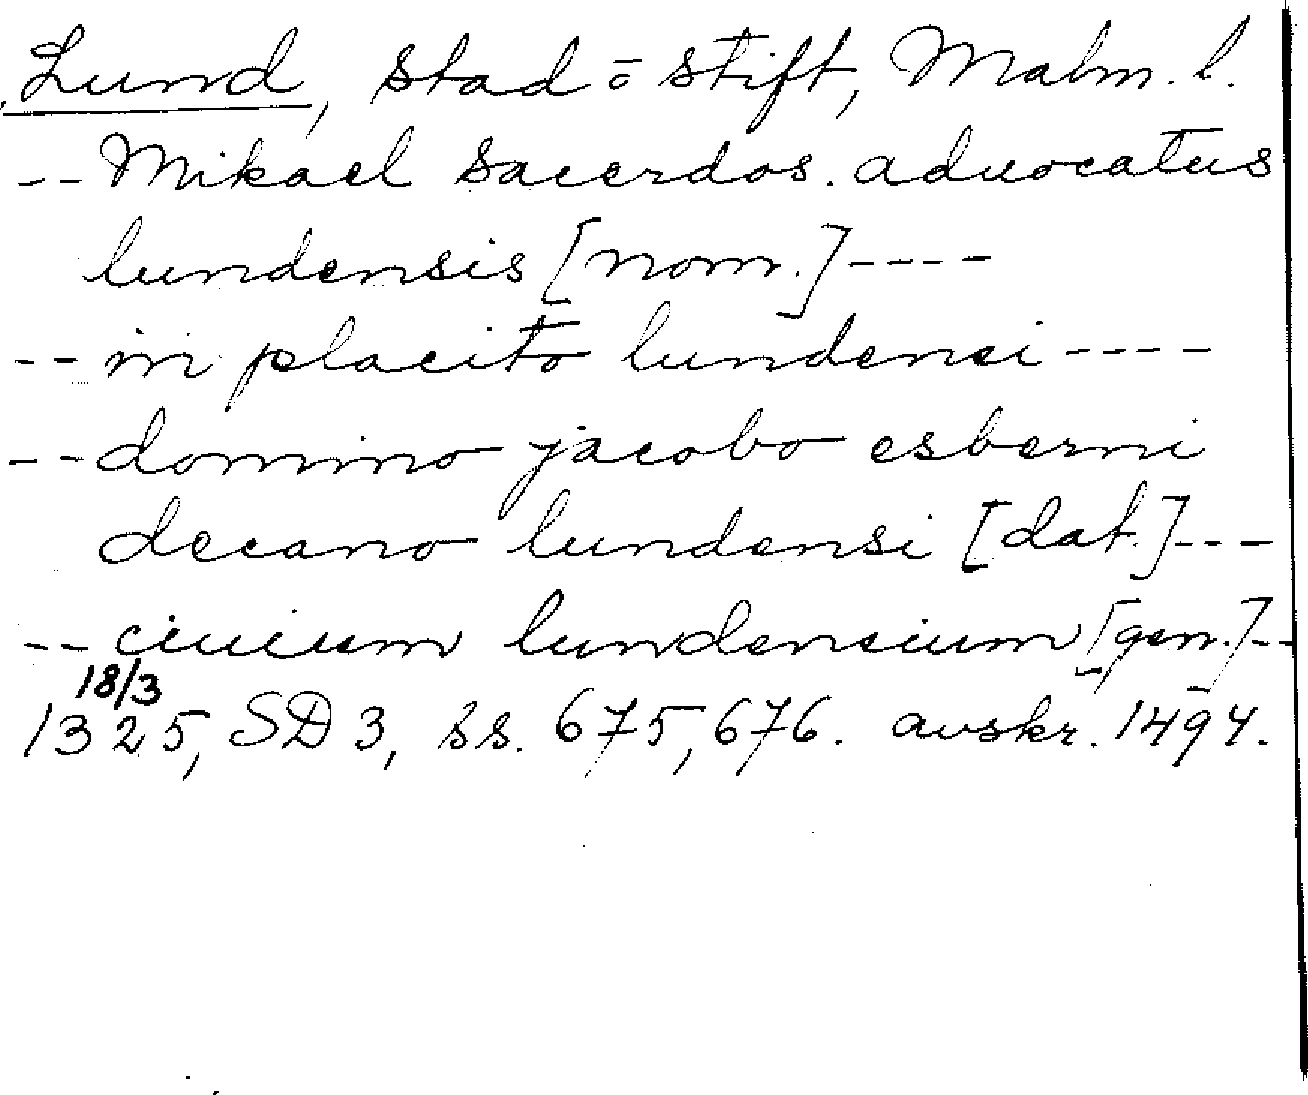 Lund, stad o stift, Malm. l.
-- Mikael sacerdos. aduocatus
lundensis [nom.] ----
-- in placito lundensi ----
-- domino jacobo esberni
decano lundensi [dat.] ---
-- ciuium lundensium [gen.] --
18/3
1325, SD 3, ss. 675, 676. avskr. 1494.